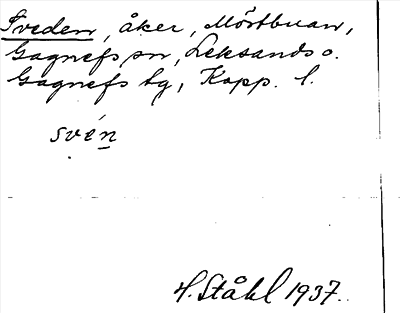 Sveden, åker, Mörtbuan,
Gagnefs sn, Leksands o.
Gagnefs tg, Kopp. l.
svén
H. Ståhl 1937.